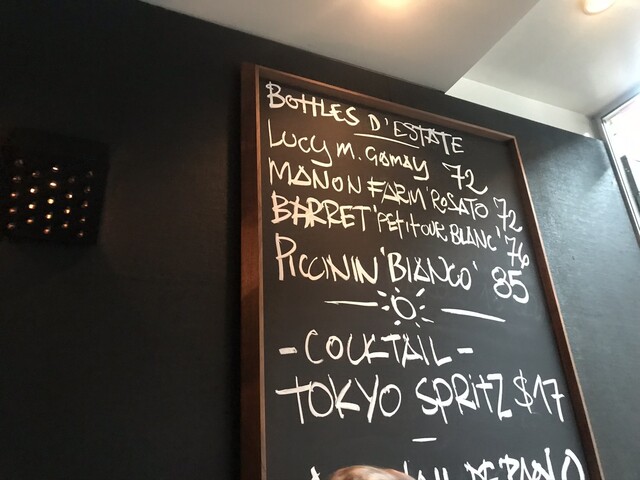 BOTTLES D'ESTATE
LUCY M. GAMAY 72
MANON FARM 'ROSATO 72
BARRET 'PETIT OUR BLANC' 76
PICCININ 'BIANCO' 85
- COCKTAIL -
TOKYO SPRITZ $17